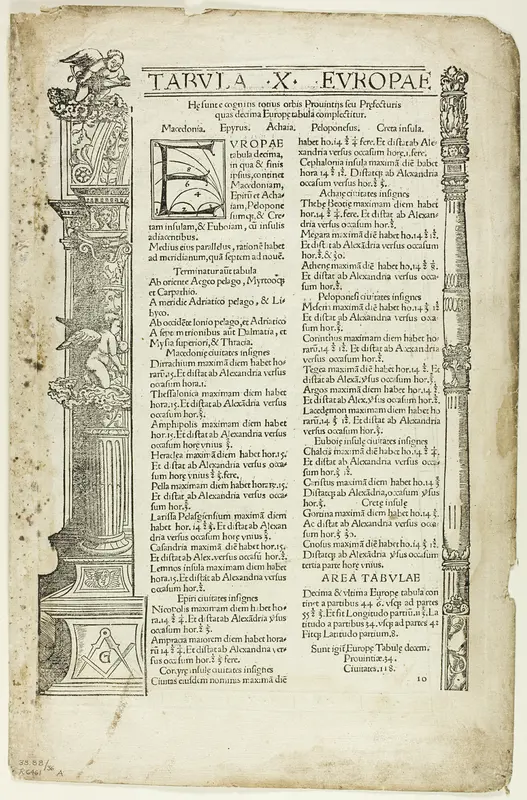 TABVLA · X · EVROPAE
Hę sunt e cognitis totius orbis Prouintijs seu Pręfecturis
quas decima Europę tabula complectitur.
Macedonia. Epyrus. Achaia. Peloponesus. Creta insula.
EVROPAE
tabula decima,
in qua & finis
ipsius, continet
Macedoniam,
Epirũ et Acha
iam, Pelopone
sumq;, & Cre-
tam insulam, & Euboiam, cũ insulis
adiacentibus.
Medius eius parallelus, rationẽ habet
ad meridianum, quã septem ad nouẽ.
Terminatur aũt tabula
Ab oriente Aegeo pelago, Myrtooq;
et Carpathio.
A meridie Adriatico pelago, & Li-
byco.
Ab occidẽte Ionio pelago, et Adriatico
A septentrionibus aũt Dalmatia, et
Mysia superiori, & Thracia.
Macedonię ciuitates insignes
Dirrachium maximam diem habet ho-
rarũ.15. Et distat ab Alexandria versus
occasum hora.1.
Thessalonica maximam diem habet
hora.15. Et distat ab Alexãdria versus
occasum hor.
Amphipolis maximam diem habet
hor.15. Et distat ab Alexandria versus
occasum horę vnius
Heraclea maximã diem habet hor.15.
Et distat ab Alexandria versus occa-
sum horę vnius fere.
Pella maximam diem habet horarũ.15.
Et distat ab Alexandria versus occa-
sum hor.
Larissa Pelasgiensium maximã diem
habet hor. 14 Et distat ab Alexan
dria versus occasum horę vnius
Casandria maximã diẽ habet hor.15.
Et distat ab Alex. versus occasũ hor.
Lemnos insula maximam diem habet
hora.15. Et distat ab Alexandria versus
occasum hor.
Epiri ciuitates insignes
Nicopolis maximam diem habet ho-
ra.14 Et distat ab Alexãdria
occasum hor.
Ampracia maiorem diem habet hora-
rũ 14 Et distat ab Alexandria ver-
sus occasum hor. fere.
Corcyrę insulę ciuitates insignes
Ciuitas eiusdem nominis maximã diẽ
habet ho.14 fere. Et distat ab Ale-
xandria versus occasum horę.1. fere.
Cephalonia insula maximã diẽ habet
hora 14 Distatq; ab Alexandria
occasum versus hor.
Achaię ciuitates insignes
Thebę Beotię maximam diem habet
hor.14 fere. Et distat ab Alexan-
dria versus occasum hor.
Megara maximã diẽ habet ho.14
Et distat ab Alexãdria versus occasum
hor. & 30.
Athenę maximã diẽ habet ho.14
Et distat ab Alexandria versus occa-
sum hor.
Peloponesi ciuitates insignes
Meseni maximã diem habet ho.14
Et distat ab Alexandria versus occa-
sum hor.
Corinthus maximam diem habet ho-
rarũ.14 Et distat ab Alexandria
versus occasum hor.
Tegea maximã diem habet hor.14. Et
distat ab Alexa. occasum hor.
Argos maximam diem habet hor.14
Et distat ab Alex. occasum hor.
Lacedemon maximam diem habet ho
rarũ.14 Et distat ab Alexandria
versus occasum hor.
Euboię insulę ciuitates insignes
Chalcis maximã diẽ habet ho.14
Et distat ab Alexandria versus occa-
sum hor.
Caristus maximã diem habet ho.14
Distatq; ab Alexãdria, occasum
hor.
Cretę insulę
Gortina maximã diem habet ho.14
Ac distat ab Alexandria versus occa-
sum hor. 30.
Cnosus maximã diem habet ho.14
Distatq; ab Alexãdria occasum
tertia parte horę vnius.
AREA TABVLAE
Decima & vltima Europę tabula con
tinet a partibus 44 6. vsq; ad partes
55 Et fit Longitudo partiũ.11 La
titudo a partibus 34. vsq; ad partes 42
Fitq; Latitudo partium.8.
Sunt igit̃ Europę Tabulę decem.
Prouintię.34.
Ciuitates.118.
10
G